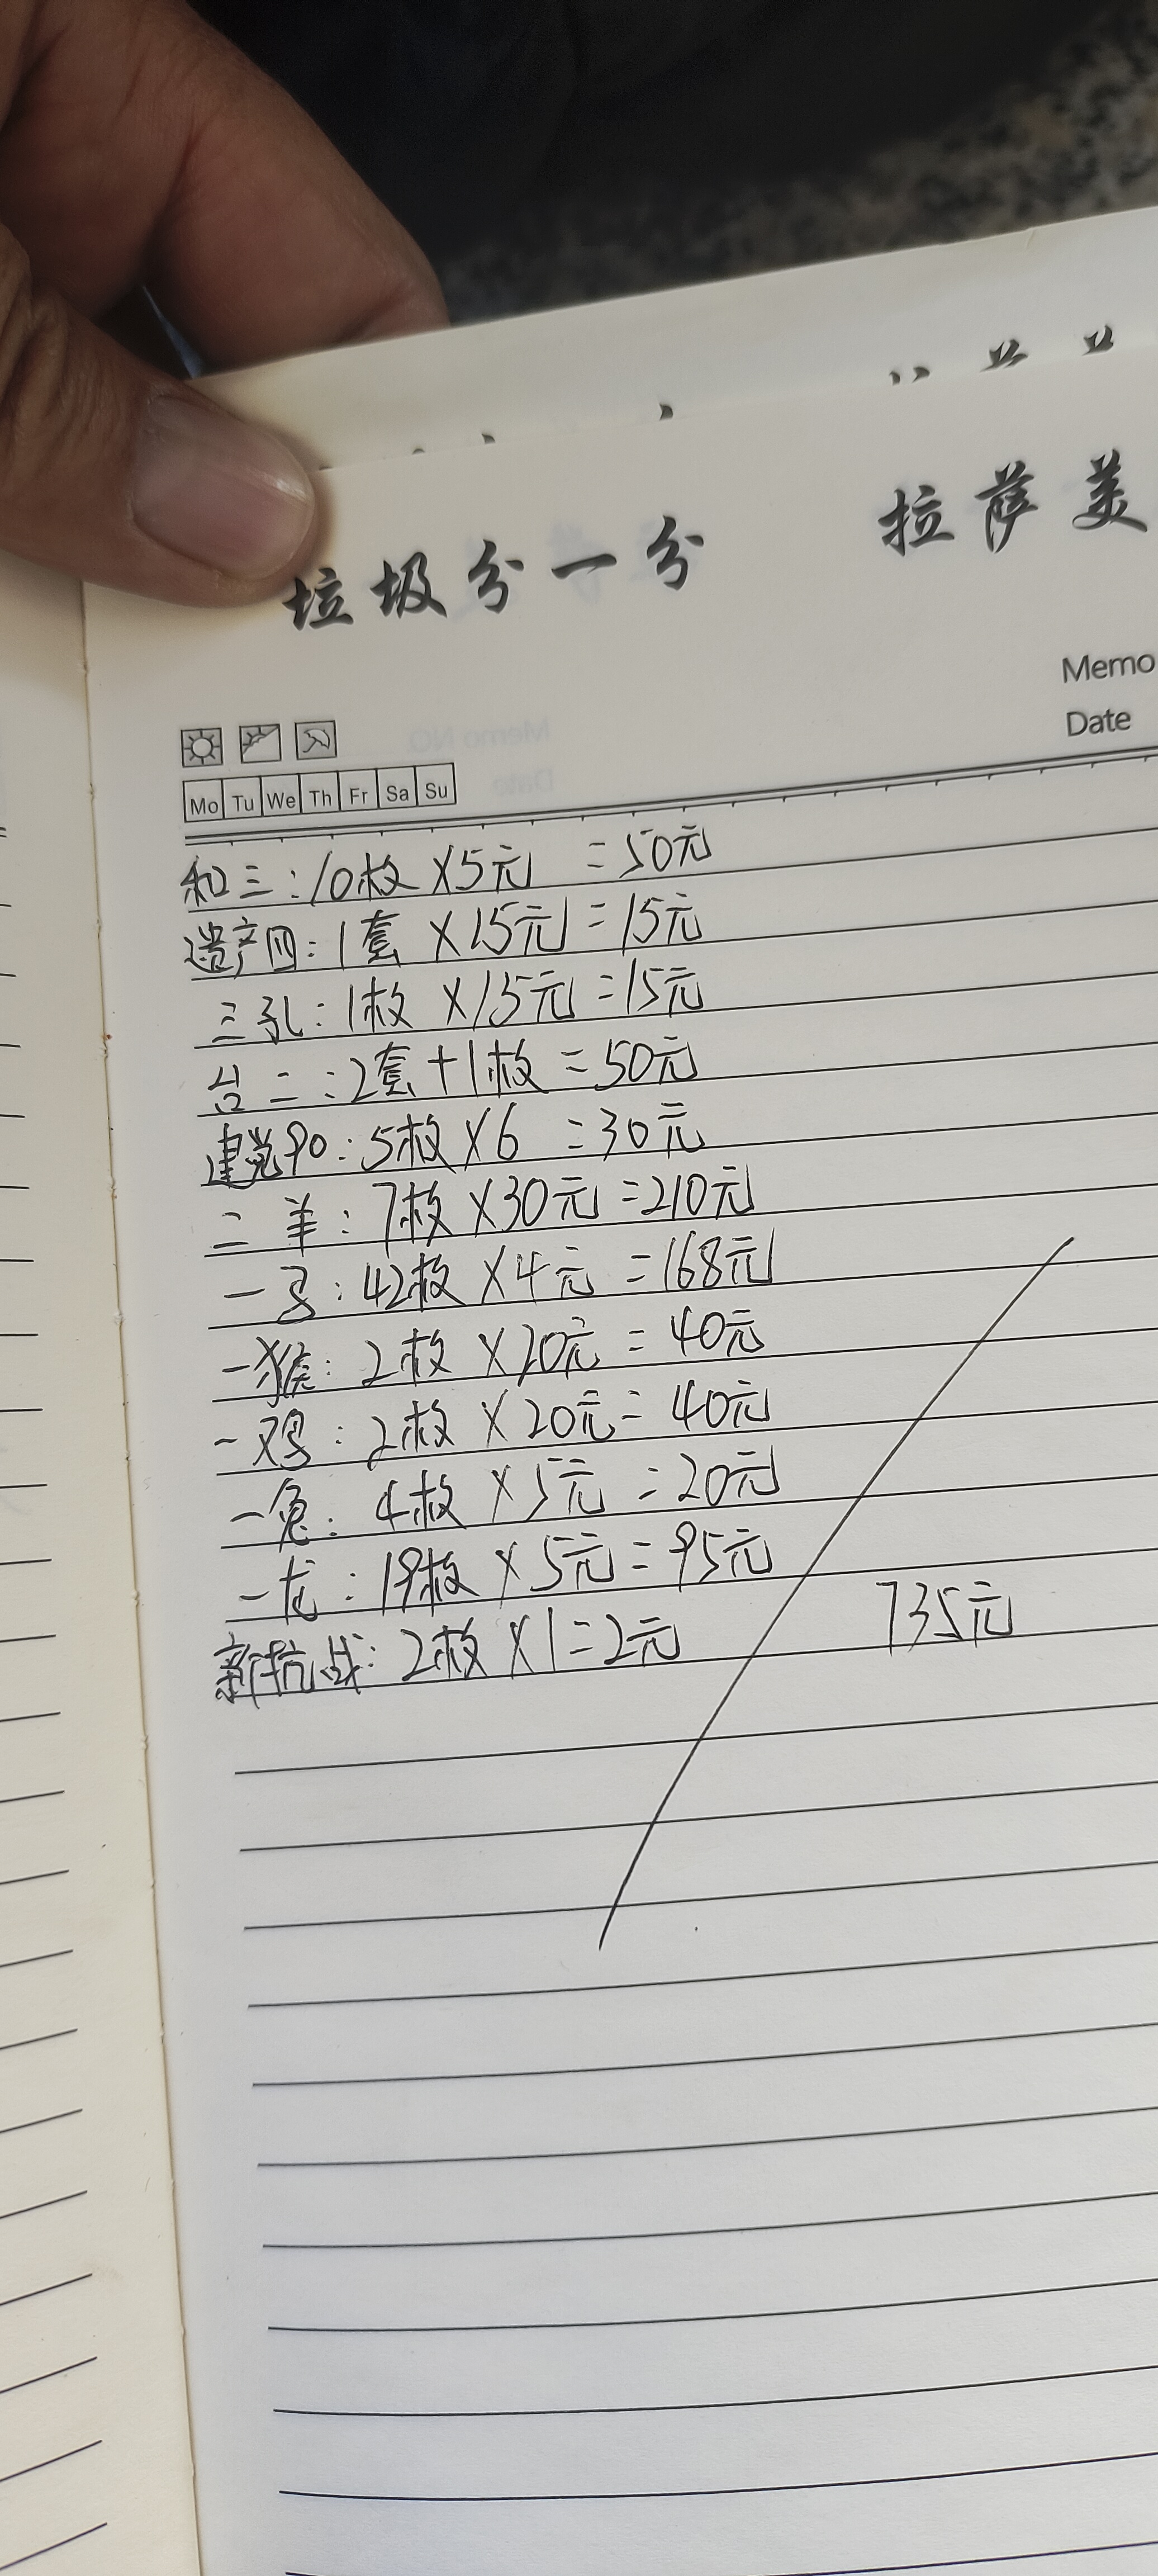 垃圾分一分 拉萨美
Memo
Date
Mo Tu We Th Fr Sa Su
和三:10枚×5元 =50元
遗产四:1套×15元=15元
三孔:1枚×15元=15元
台二:2套+1枚=50元
建党90:5枚×6 =30元
二羊:7枚×30元=210元
一马:42枚×4元=168元
一猴:2枚×20元=40元
一鸡:2枚×20元=40元
一兔:4枚×5元=20元
一龙:19枚×5元=95元
735元
新抗战:2枚×1=2元